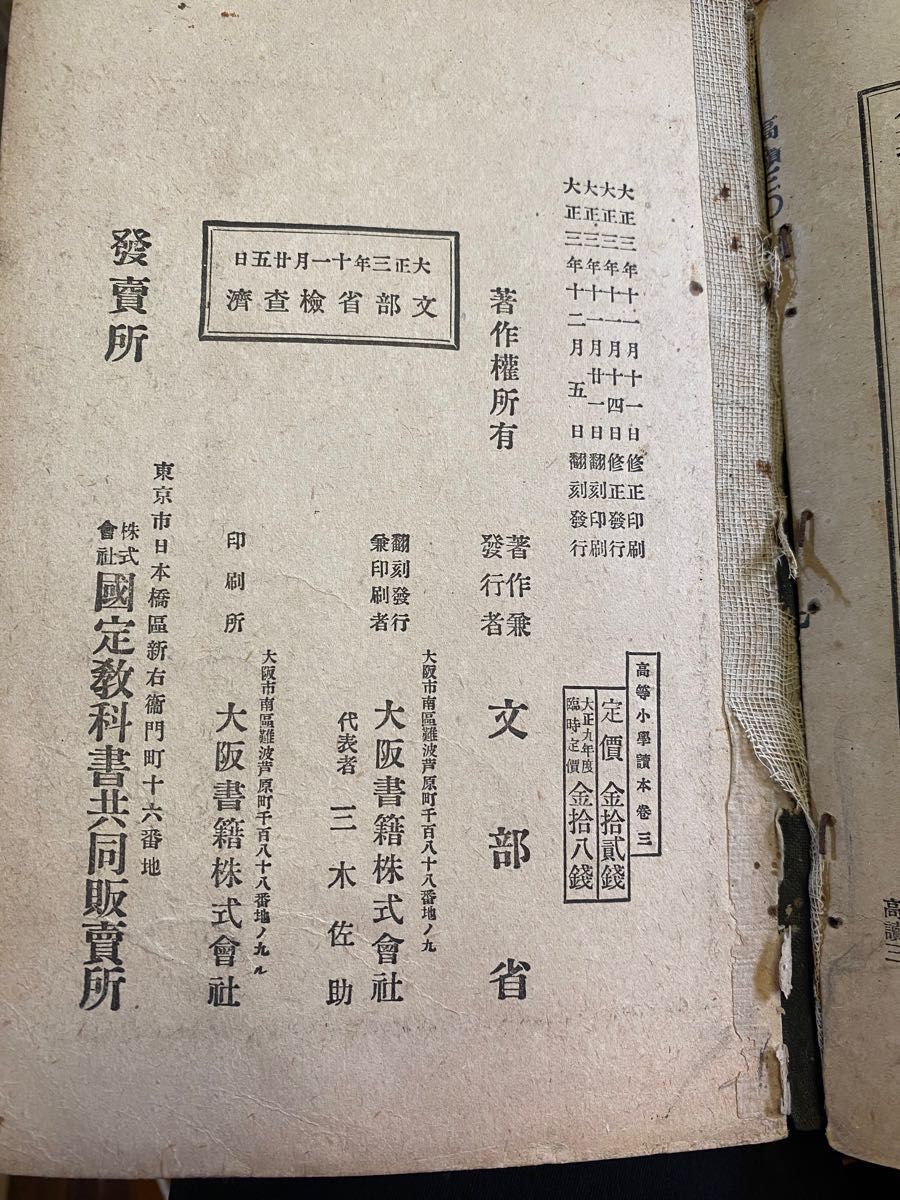 大正三年十一月十一日修正印刷
大正三年十一月十四日修正發行
大正三年十一月廿一日翻刻印刷
大正三年十二月五日翻刻發行
高等小學讀本卷三
定價 金拾貳錢
大正九年度
臨時定價 金拾八錢
著作權所有
著作兼
發行者
文部省
翻刻發行
兼印刷者
大阪市南區難波芦原町千百八十八番地ノ九
大阪書籍株式會社
代表者 三木佐助
大正三年十一月廿五日
文部省檢查濟
印刷所
大阪市南區難波芦原町千百八十八番地ノ九ル
大阪書籍株式會社
發賣所
東京市日本橋區新右衞門町十六番地
株式
會社
國定敎科書共同販賣所
高讀三